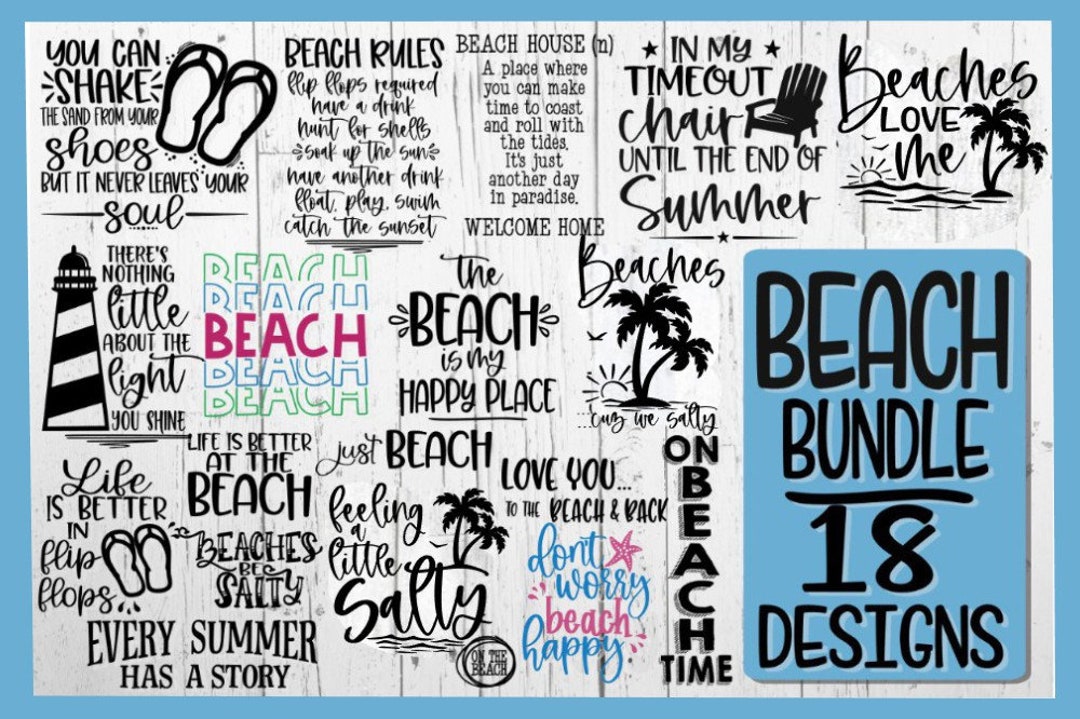 YOU CAN
SHAKE
THE SAND FROM YOUR
shoes
BUT IT NEVER LEAVES YOUR
soul
BEACH RULES
flip flops required
have a drink
hunt for shells
soak up the sun
have another drink
float, play, swim
catch the sunset
BEACH HOUSE (n)
A place where
you can make
time to coast
and roll with
the tides.
It's just
another day
in paradise.
WELCOME HOME
IN MY
TIMEOUT
chair
UNTIL THE END OF
Summer
Beaches
LOVE
me
THERE'S
NOTHING
little
ABOUT THE
light
YOU SHINE
BEACH
BEACH
BEACH
BEACH
BEACH
the
BEACH
is my
HAPPY PLACE
Beaches
...cuz we salty
BEACH
BUNDLE
18
DESIGNS
Life
IS BETTER
IN
flip
flops...
LIFE IS BETTER
AT THE
BEACH
BEACHES
BEE
SALTY
EVERY SUMMER
HAS A STORY
just BEACH
feeling
a
little
Salty
ON THE
BEACH
LOVE YOU...
TO THE BEACH & BACK
don't
worry
beach
happy
ON
BEACH
TIME